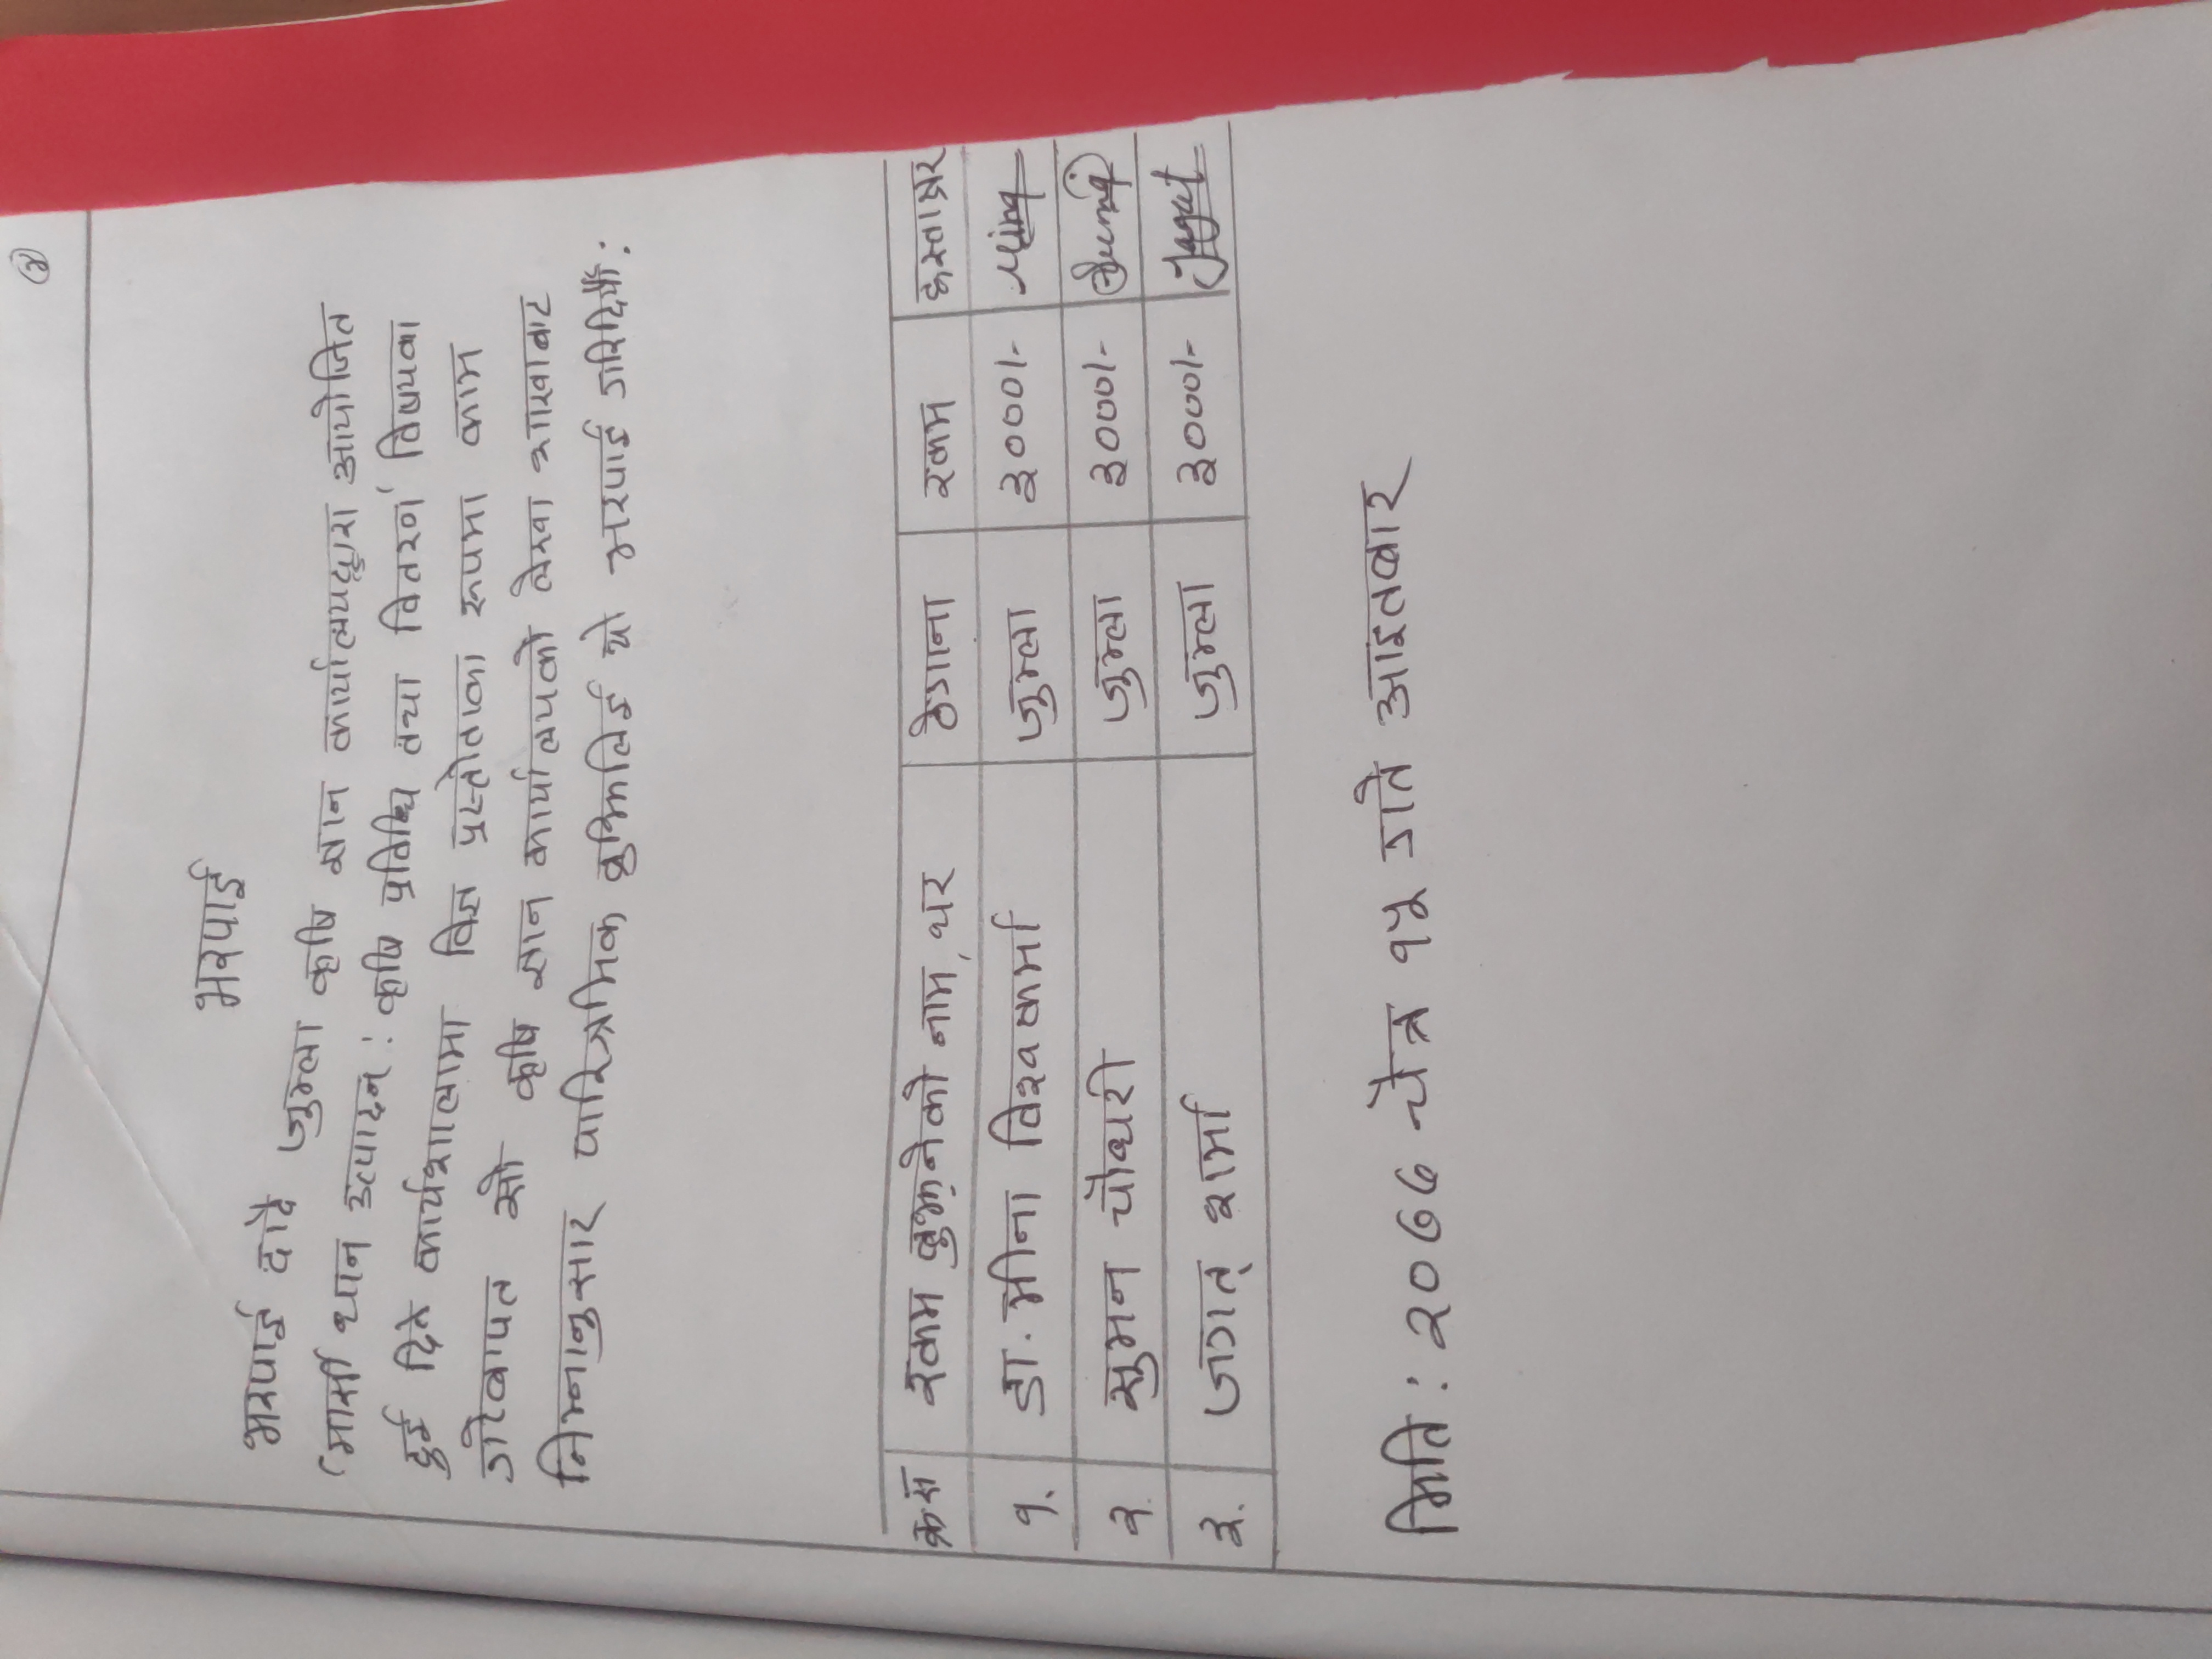 ४
भरपाई
भरपाई दादै जुम्ला कृषि ज्ञान कार्यालयद्वारा आयोजित
'मार्सी धान उत्पादन : कृषि प्रविधि तथा वितरण' विषयका
दुई दिने कार्यशालामा विज्ञ प्रस्तोताका रूपमा काम
गरेबापत सो कृषि ज्ञान कार्यालयको लेखा शाखाबाट
निम्नानुसार पारिश्रमिक बुझिलिई यो भरपाई गरिदियौँ :
क्रस रकम बुझ्नेको नाम, थर ठेगाना रकम हस्ताक्षर
१. डा. मीना विश्वकर्मा जुम्ला ३०००।- Mina
२. सुमन चौधरी जुम्ला ३०००।-
३. जगत् शर्मा जुम्ला ३०००।- Jagat
मिति : २०७७ चैत्र १५ गते आइतबार